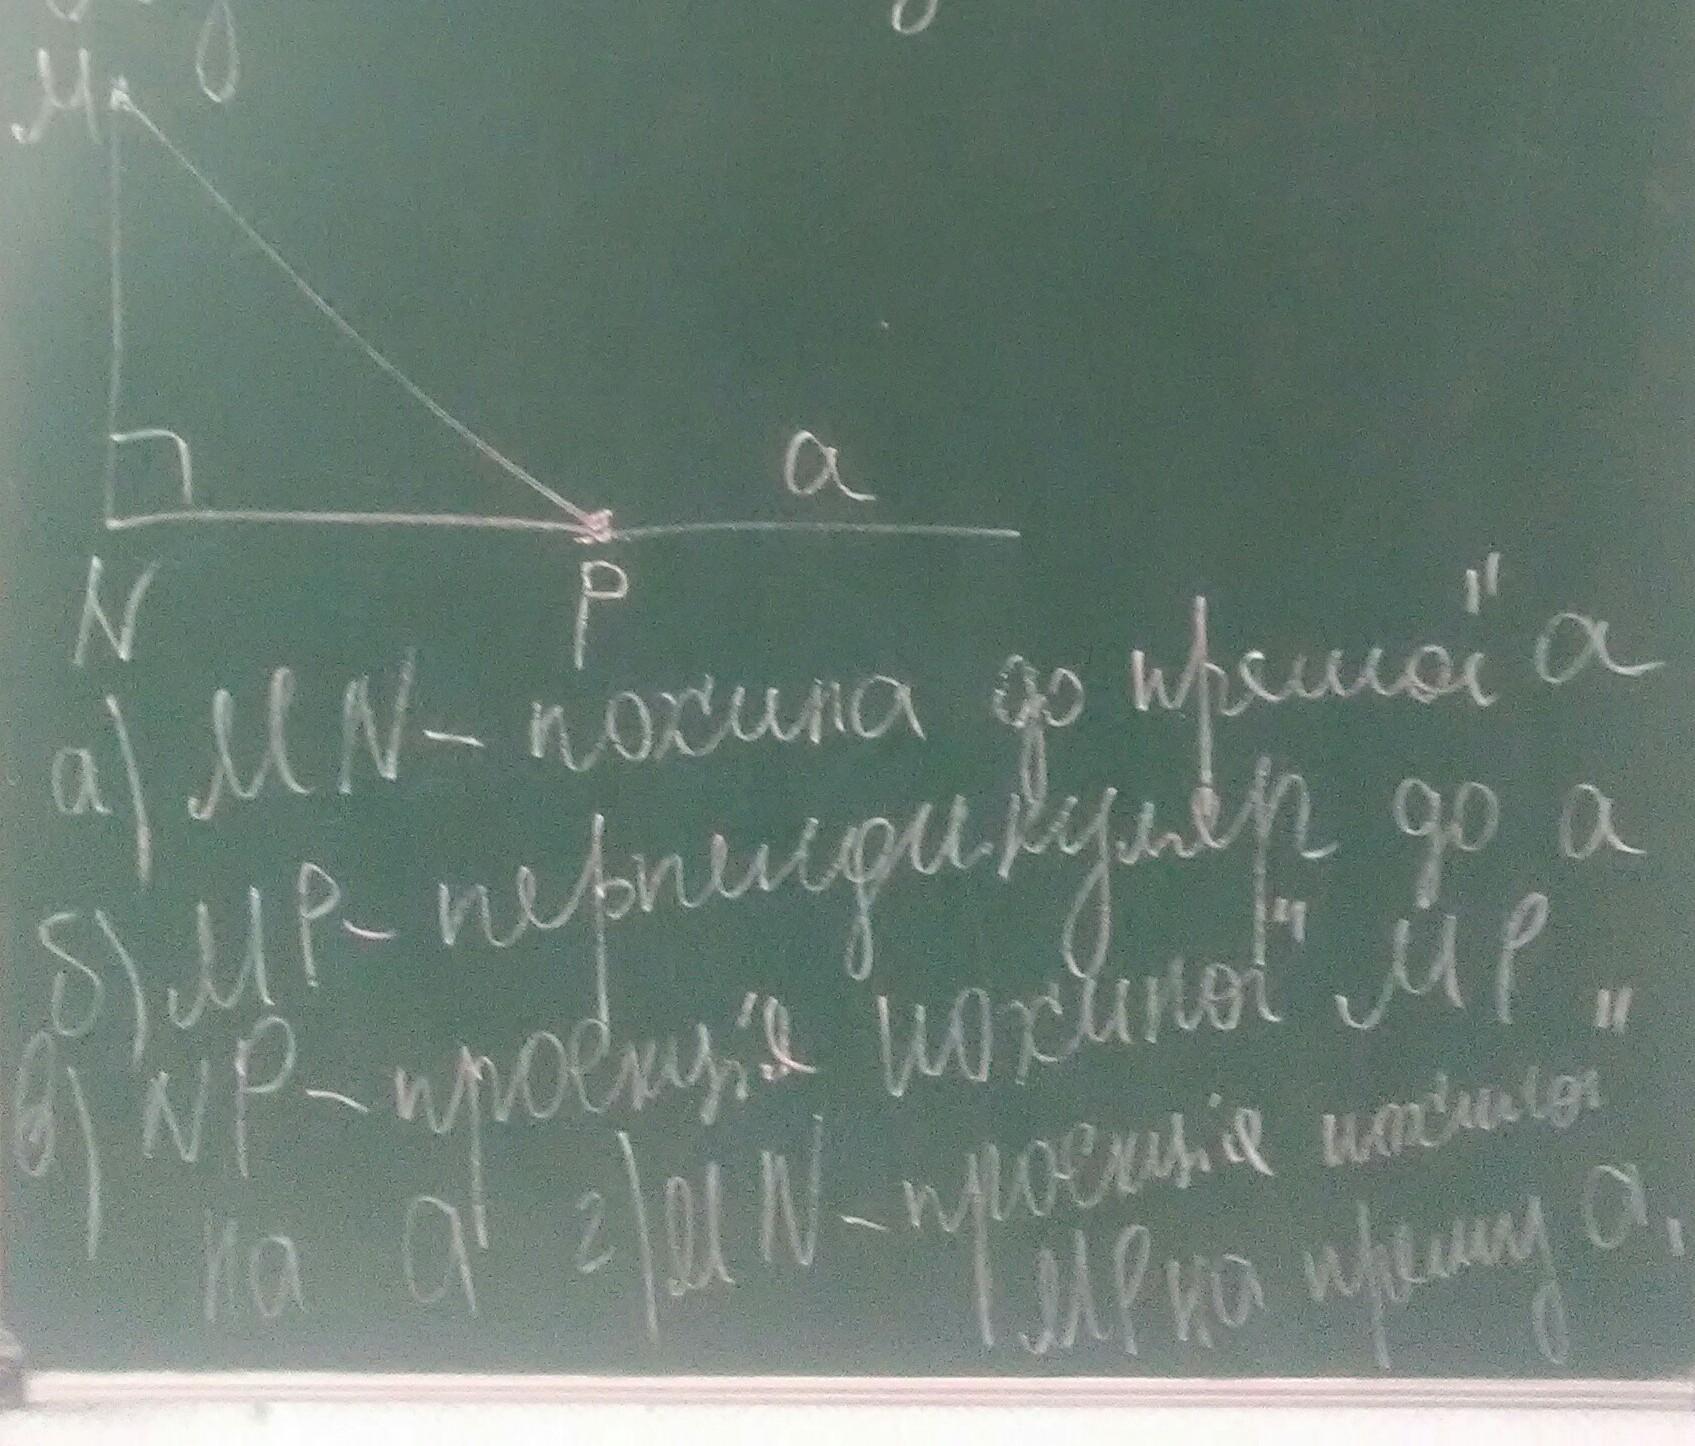 M
a
N
P
а) MN – похила до прямої а
б) MP – перпендикуляр до а
в) NP – проєкція похилої MP
на а г) MN – проєкція похилої
MP на пряму а.